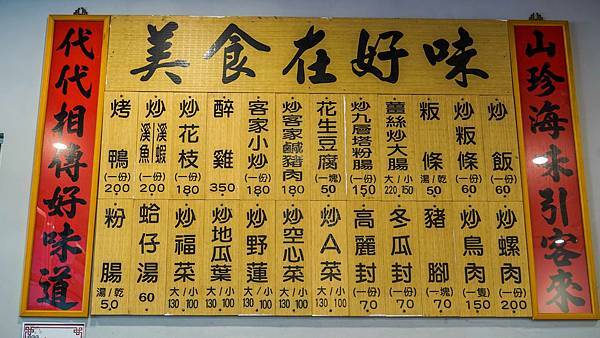 美食在好味
山珍海味引客來
炒飯 (一份) 60
炒粄條 (一份) 60
粄條 湯/乾 50
薑絲炒大腸 大/小 220 150
炒九層塔粉腸 (一份) 150
花生豆腐 (一塊) 50
炒客家鹹豬肉 (一份) 180
客家小炒 (一份) 180
醉雞 350
炒花枝 (一份) 180
炒溪蝦溪魚 (一份) 200
烤鴨 (一份) 200
炒螺肉 (一份) 200
炒鳥肉 (一隻) 150
豬腳 (一塊) 70
冬瓜封 (一份) 70
高麗封 (一份) 70
炒A菜 大/小 130 100
炒空心菜 大/小 130 100
炒野蓮 大/小 130 100
炒地瓜葉 大/小 130 100
炒福菜 大/小 130 100
蛤仔湯 60
粉腸 湯/乾 50
代代相傳好味道